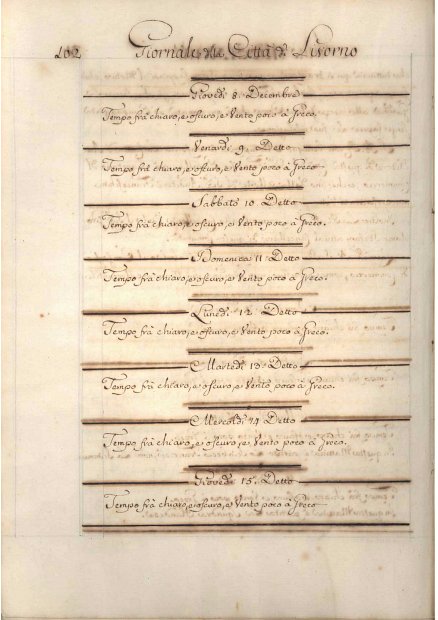 102 Giornale della Città di Livorno
Giovedì 8. Decembre
Tempo frà chiaro, e oscuro, e Vento poco à Greco.
Venardì 9. Detto
Tempo frà chiaro, e oscuro, e Vento poco à Greco
Sabbato 10 Detto
Tempo frà chiaro, e oscuro, e Vento poco à Greco.
Domenica 11 Detto
Tempo frà chiaro, e oscuro, e Vento poco à Greco.
Lunedì 12 Detto
Tempo frà chiaro, e oscuro, e Vento poco à Greco.
Martedì 13 Detto
Tempo frà chiaro, e oscuro, e Vento, poco à Greco.
Mercoldì 14 Detto
Tempo frà chiaro, e oscuro, e Vento poco à Greco.
Giovedì 15. Detto
Tempo frà chiaro, e oscuro, e Vento poco à Greco